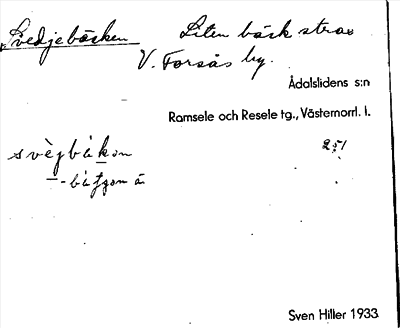 Svedjebäcken Liten bäck strax
V. Forsås by.
Ådalslidens s:n
Ramsele och Resele tg., Västernorrl. l.
251
Sven Hiller 1933